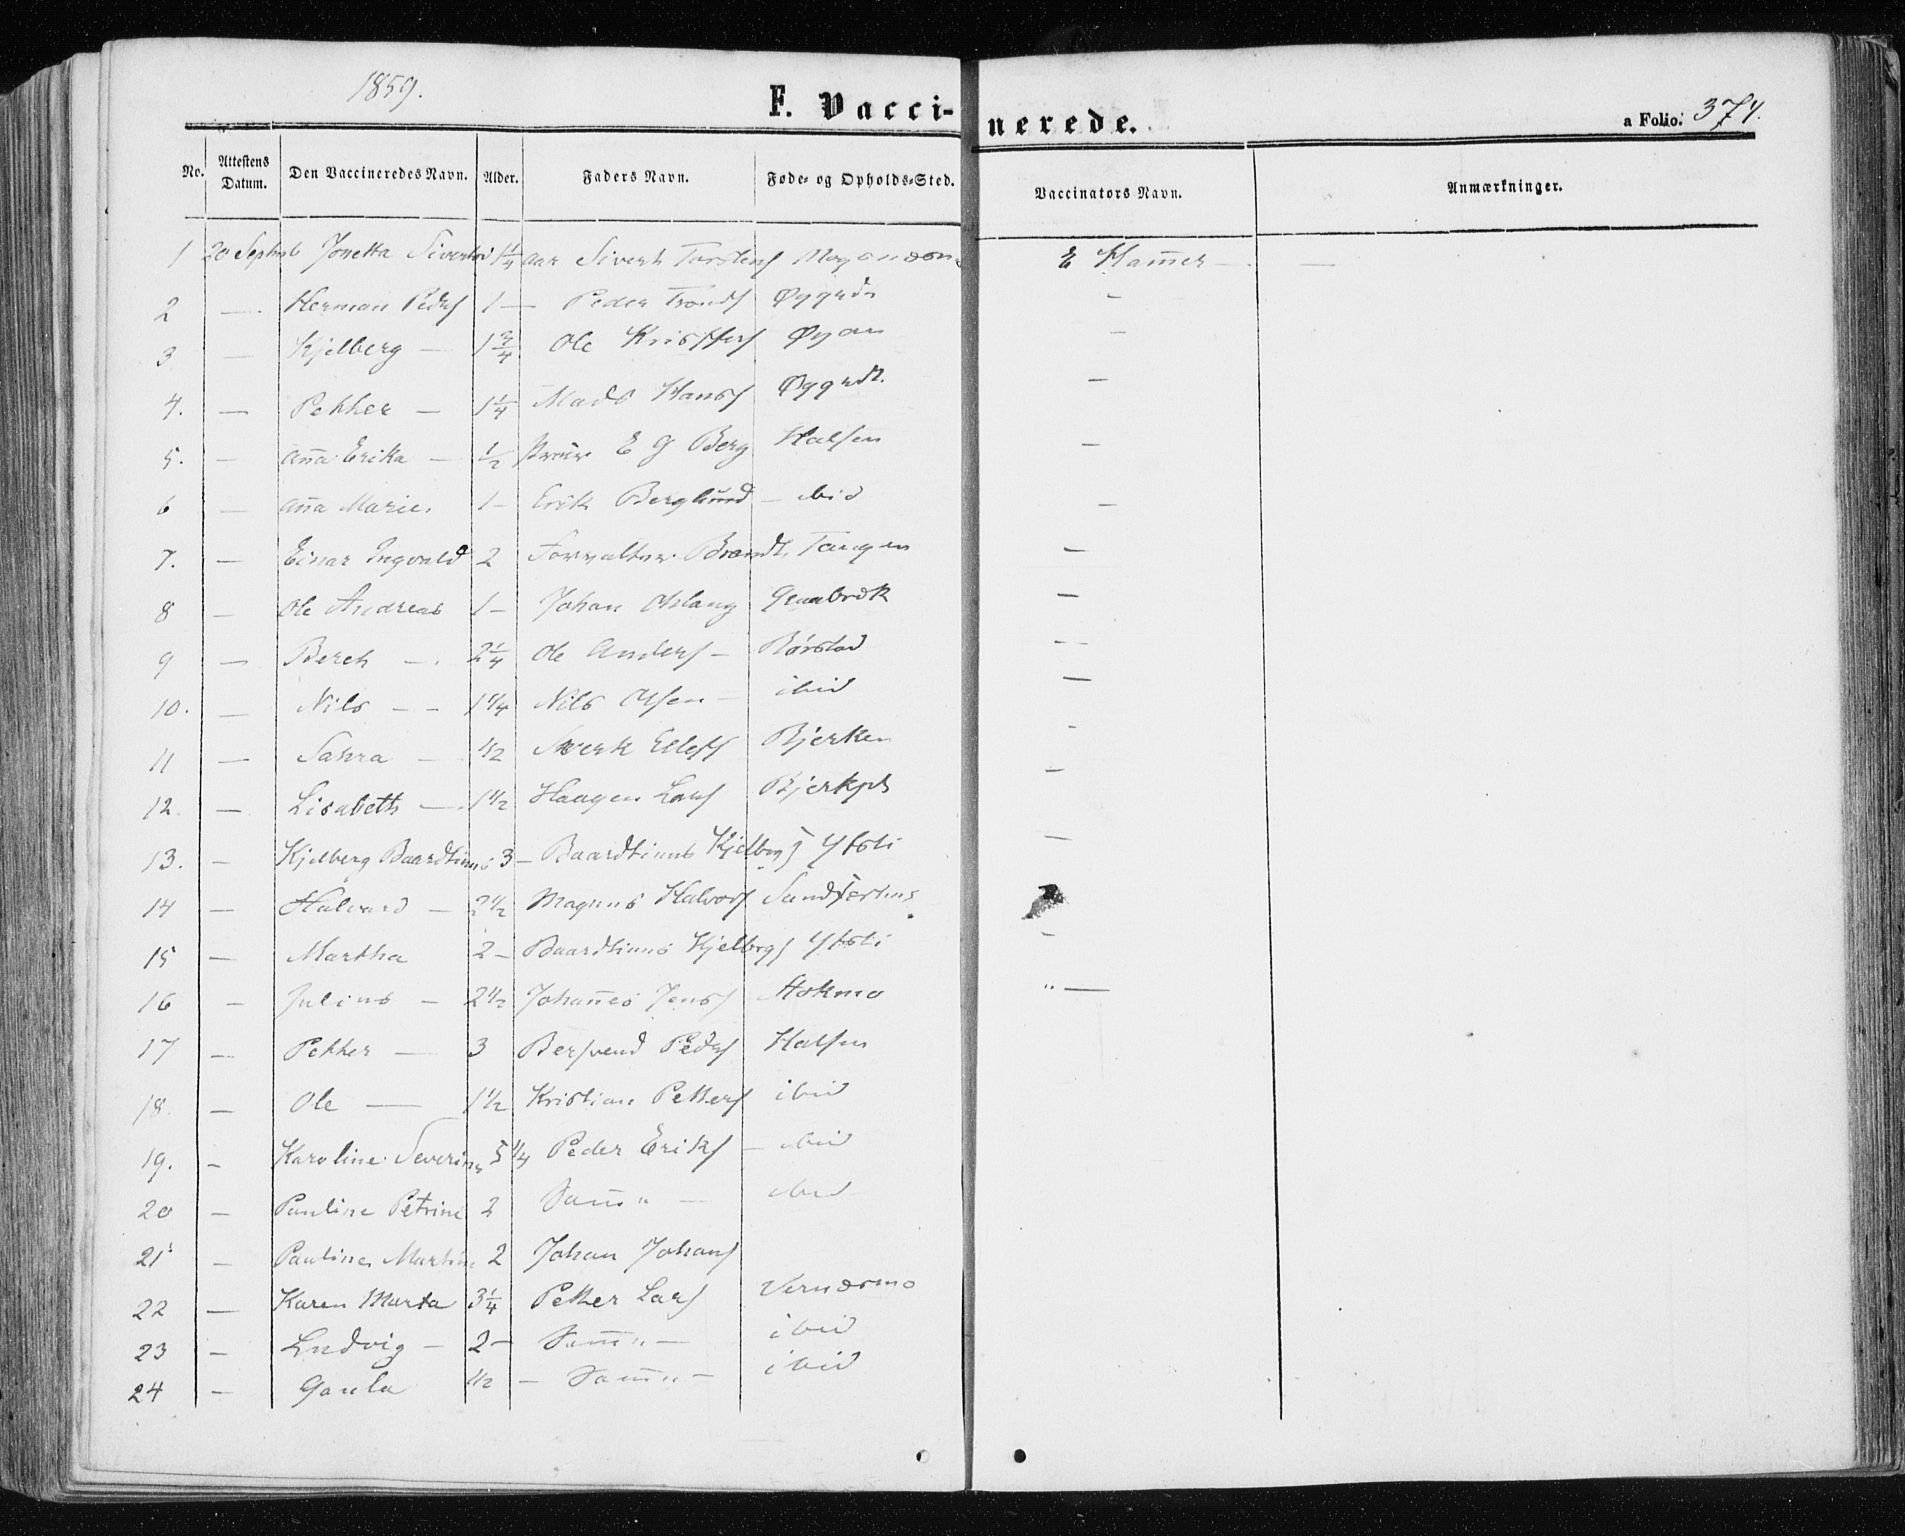 1859.
F. Vaccinerede.
a Folio. 374.
No. Attestens Datum. Den Vaccineredes Navn. Alder. Faders Navn. Føde- og Opholds-Sted. Vaccinators Navn. Anmærkninger.
1 20 Septmb Jonetta 1 1/4 aar Sivert E Hammer — —
2 — Herman Peders 1 — Peder Tronds —
3 — Kjelberg — 1 3/4 Ole Øyan —
4. — Petter — 1 1/4 Mads Hans —
5. — Anna Erika — 1/2 E G Berg Halsen —
6 — Anna Marie. 1 — Erik Berglund — ibid —
7. — Einar Ingvald 2 Forvalter Brandt. Tangen —
8 — Ole Andreas 1 — Johan —
9 — Beret — 2 1/4 Ole Anders — Børstad —
10. — Nils — 1 1/4 Nils Olsen — ibid —
11 — Sahra — 1/2 Bjerken —
12. — Lisabeth — 1 1/2 Haagen Lars —
13. — Kjelberg Baardtinus 3 — Baardtinus Kjelbergs —
14 — Halvard — 2 1/2 Magnus Halvors
15 — Martha 2 — Baardtinus Kjelbergs —
16 — Julius — 2 1/2 Johannes Jens Stokmo " —
17 — Petter — 3 Bersvend Peders Halsen
18. — Ole — 1 1/2 Kristian Petters ibid
19. — Karoline Severine 5 1/4 Peder Eriks — ibid
20 — Pauline Petrine 2 Samm " — ibid
21 — Pauline Martin 2 Johan Johans
22 — Karen Marta 3 1/4 Petter Lars Vernæsmo
23 — Ludvig — 2 — Samm " — ibid
24 — Gaula 1/2 — Samm " — ibid